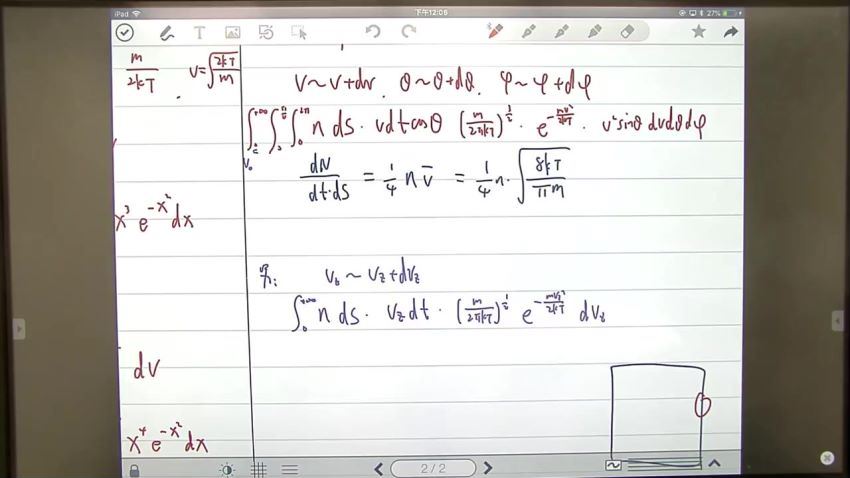 iPad 下午12:06 27%
m/2kT V=√(2kT/m)
V~V+dV. θ~θ+dθ. φ~φ+dφ
n ds · vdtcosθ (m/2πkT) · e^(-mv²/2kT) · v²sinθ dv dθ dφ
dN/dt·ds = 1/4 n v̄ = 1/4 n · √(8kT/πm)
x³ e^(-x²) dx
~ Vz+dVz
n ds · Vz dt · (m/2πkT) e^(-mVz²/2kT) dVz
dV
x⁴ e^(-x²) dx
2 / 2